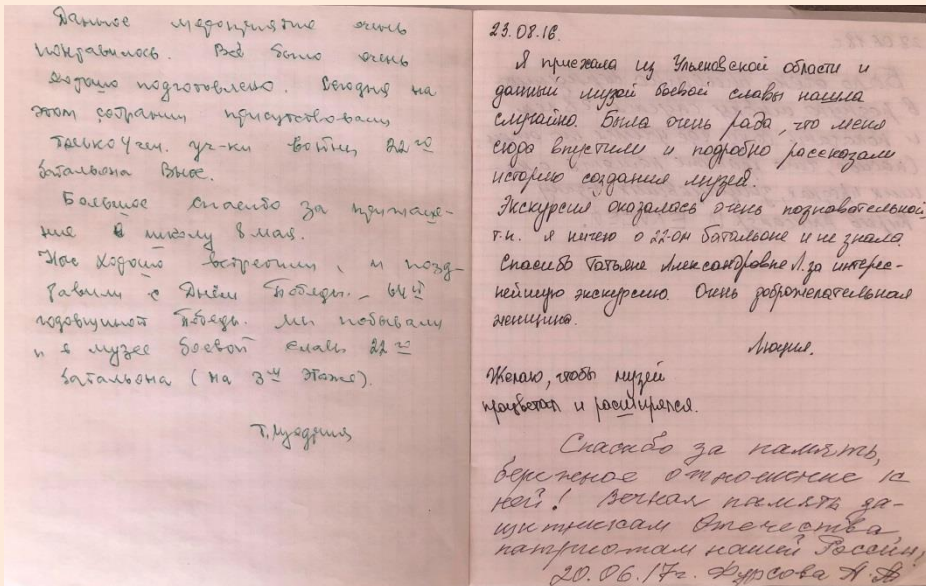 Данное мероприятие очень
понравилось. Всё было очень
хорошо подготовлено. Сегодня на
этом собрании присутствовали
только 4 чел. уч-ки войны 22го
батальона Внос.
Большое спасибо за приглаше-
ние в школу 8 мая.
Нас хорошо встретили, и позд-
равили с Днём Победы. 64й
годовщиной Победы. Мы побывали
и в музее боевой славы 22го
батальона (на 3м этаже).
23.08.16.
Я приехала из Ульяновской области и
данный музей боевой славы нашла
случайно. Была очень рада, что меня
сюда впустили и подробно рассказали
историю создания музея.
Экскурсия оказалась очень познавательной
т.к. я ничего о 22-ом батальоне и не знала.
Спасибо Татьяне Александровне Л. за интерес-
нейшую экскурсию. Очень доброжелательная
женщина.
Лидия.
Желаю, чтобы музей
процветал и расширялся.
Спасибо за память,
бережное отношение к
ней! Вечная память за-
щитникам Отечества
патриотам нашей России!
20.06.17г. Фурсова А.